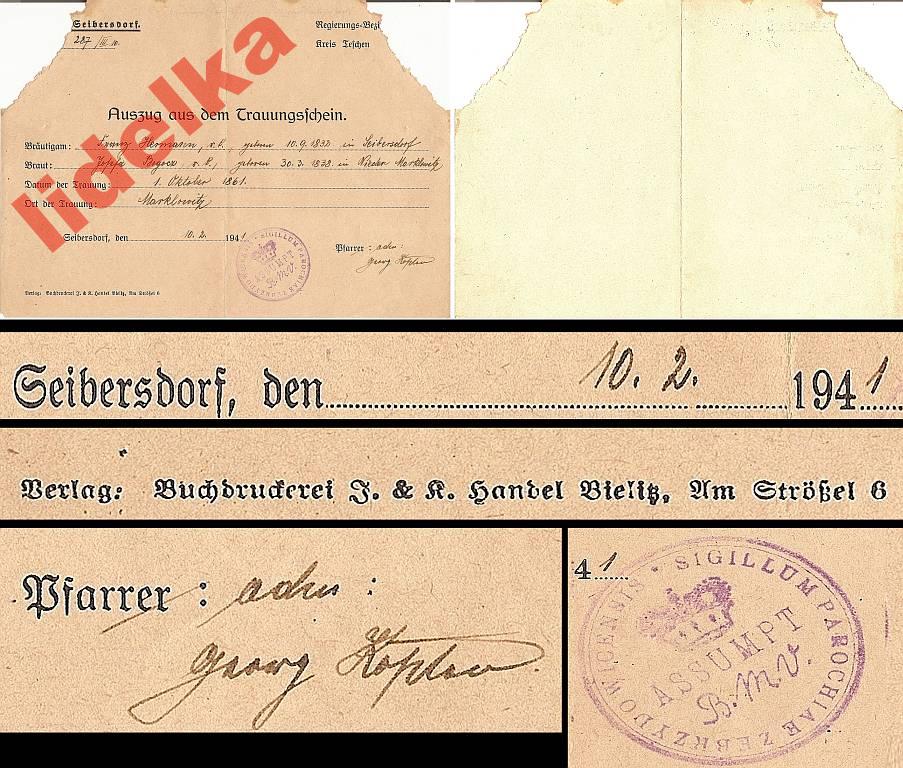 Seibersdorf.
287/III 10.
Regierungs-Bezi
Kreis Teschen
lidelka
Auszug aus dem Trauungsschein.
Bräutigam: Franz Hermann, geboren 10.9.1832 in Seibersdorf
Braut: geboren 30.3.1838 in Nieder Marklowitz
Datum der Trauung: 1. Oktober 1861.
Ort der Trauung: Marklowitz
Seibersdorf, den 10.2. 1941
Pfarrer: adm:
Georg
SIGILLUM PAROCHIAE ZEBRZYDOWICENSIS
ASSUMPT
B.M.V.
Verlag: Buchdruckerei J. & K. Handel Bielitz, Am Strößel 6
Seibersdorf, den 10. 2. 1941
Verlag: Buchdruckerei J. & K. Handel Bielitz, Am Strößel 6
Pfarrer: adm:
Georg
41
SIGILLUM PAROCHIAE ZEBRZYDOWICENSIS
ASSUMPT
B.M.V.